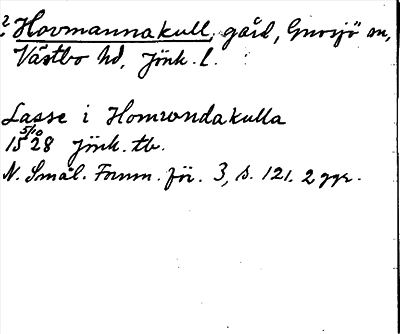 ? Hovmannakull, gård, Gnosjö sn,
Västbo hd, Jönk. l.
Lasse i Homwndakulla
15 5/10 28 Jönk. tb.
N. Smål. Fornm.för. 3, s. 121. 2 ggr.